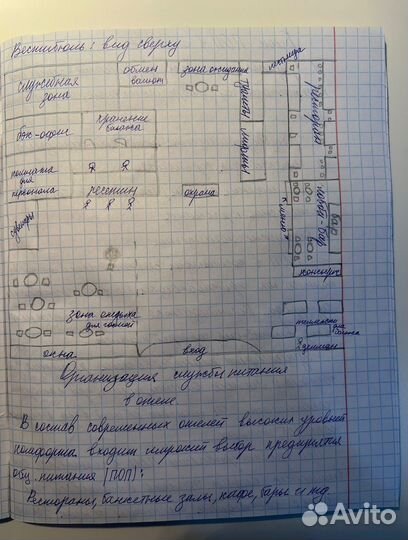 Вестибюль: вид сверху
служебная зона
обмен валют
зона ожидания
лестница
туалеты
лифты
ресторан
бэк-офис
хранение багажа
комната для персонала
ресепшн
охрана
лобби-бар
бар
сувениры
консьерж
зона отдыха для гостей
для багажа
окна
вход
Организация службы питания
в отеле
В состав современных отелей высокого уровня
комфорта входит широкий выбор предприятия
общ. питания (ПОП):
Рестораны, банкетные залы, кафе, бары и т.д.
Avito